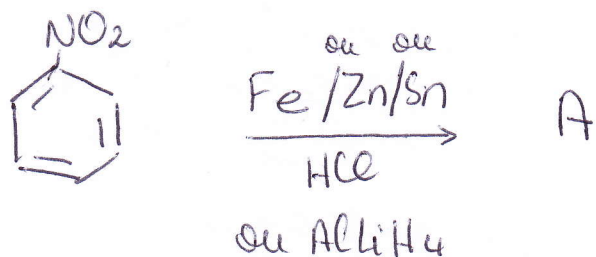 NO2
ou ou
Fe/Zn/Sn
A
HCl
ou AlLiH4